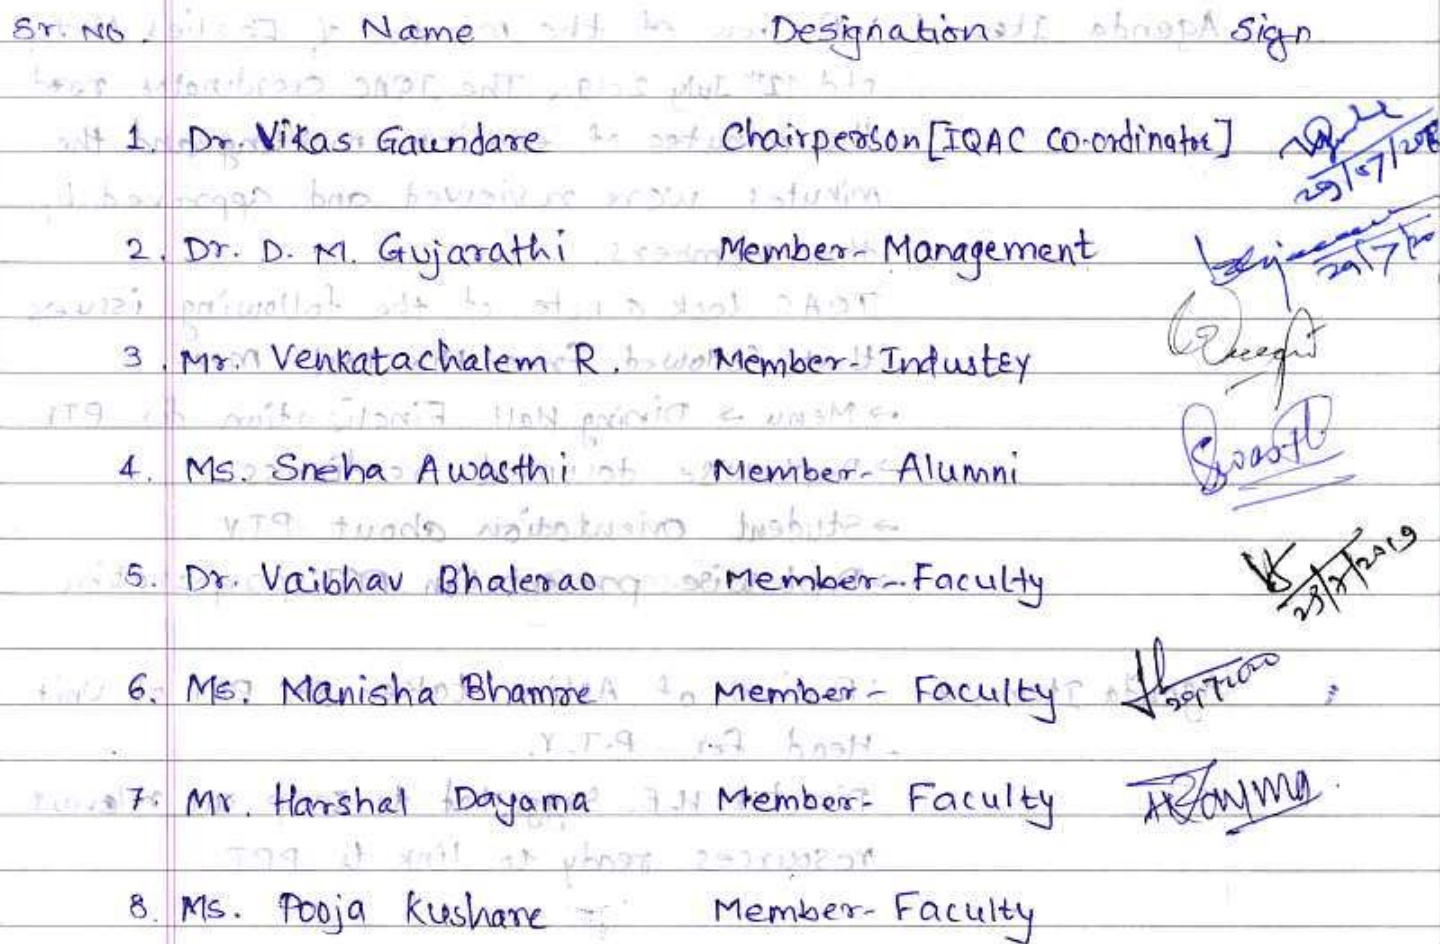 Sr. No. Name Designation Sign
1. Dr. Vikas Gaundare Chairperson [IQAC Co-ordinator] 29/07/20
2. Dr. D. M. Gujarathi Member- Management 29/7/20
3. Mr. Venkatachalem R. Member- Industry
4. Ms. Sneha Awasthi Member- Alumni
5. Dr. Vaibhav Bhalerao Member- Faculty 29/7/2019
6. Ms. Manisha Bhamre Member- Faculty
7. Mr. Harshal Dayama Member- Faculty
8. Ms. Pooja Kushare Member- Faculty